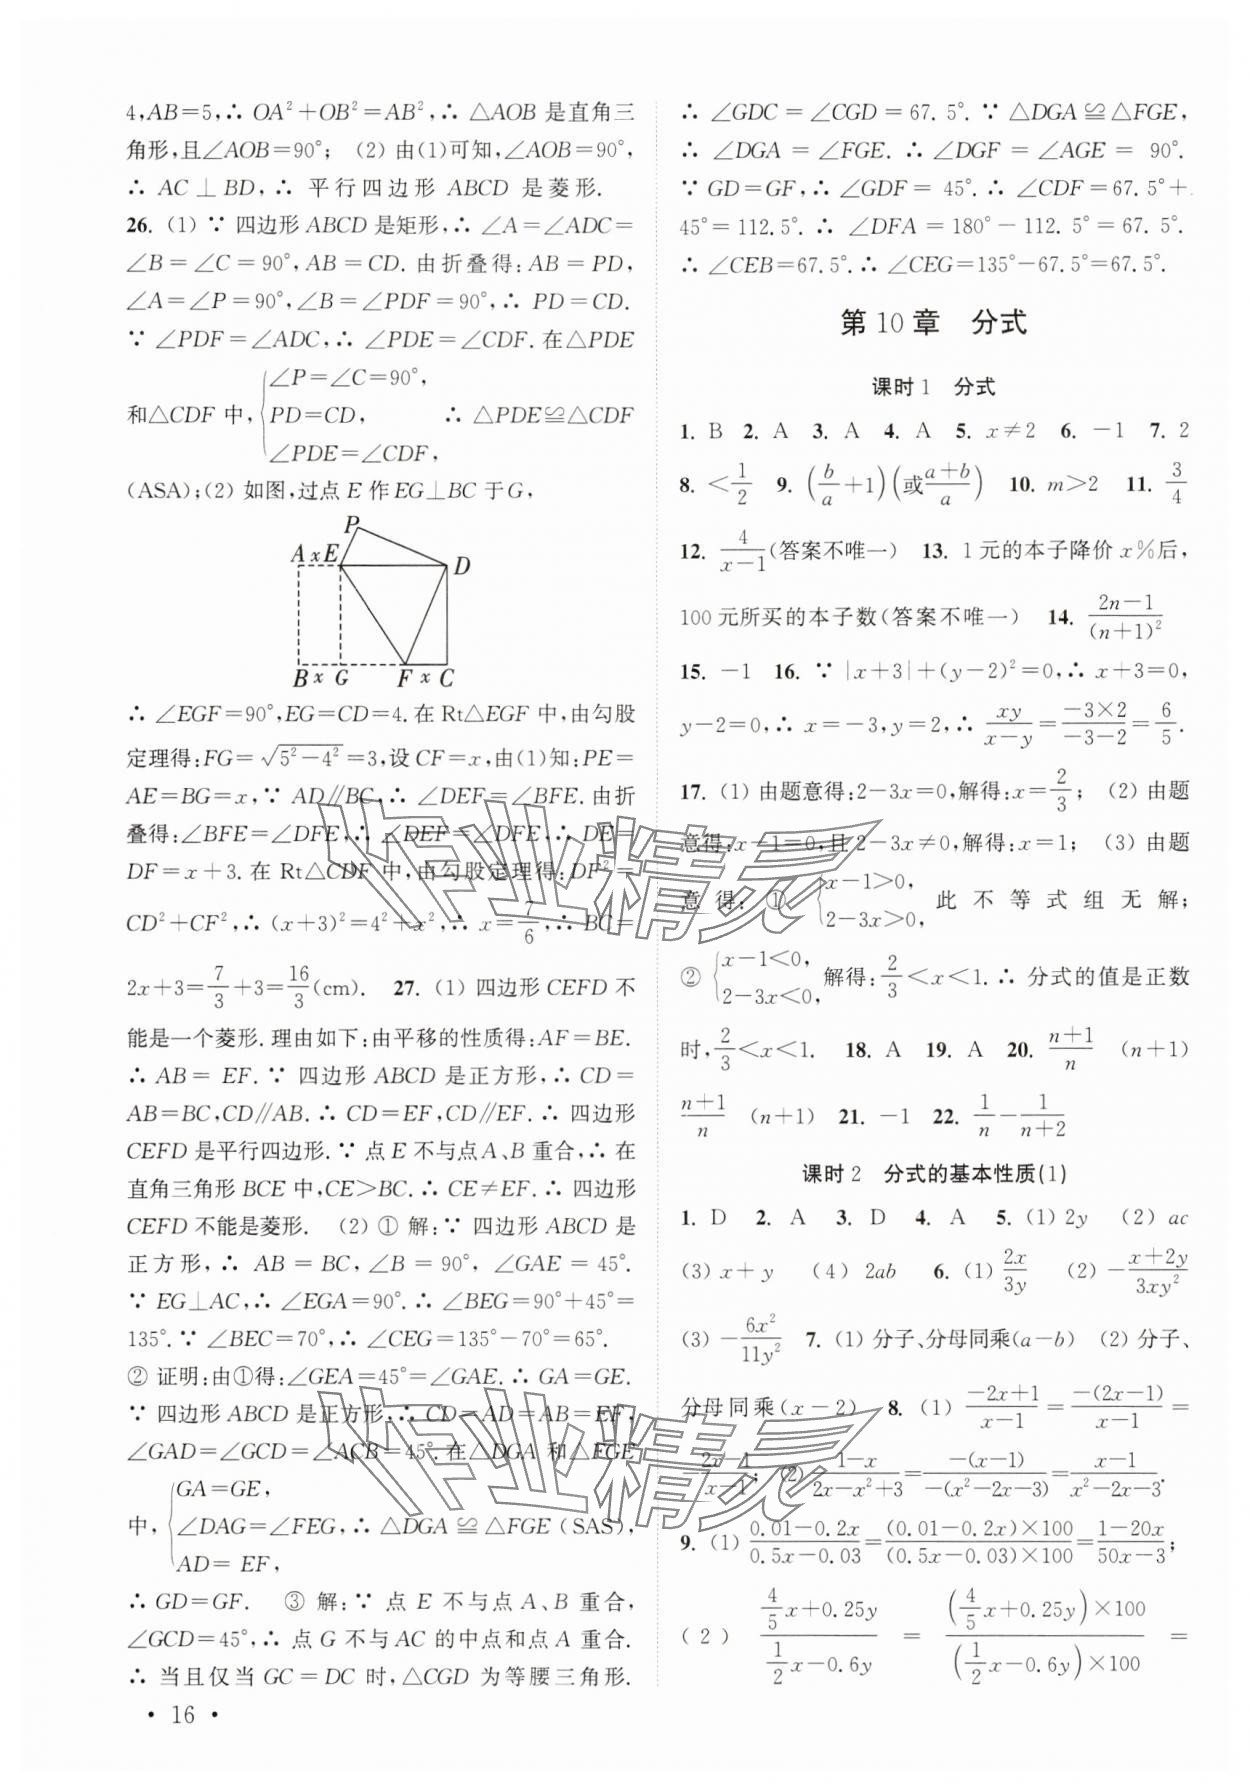 4,AB=5,∴ OA²+OB²=AB²,∴ △AOB是直角三
角形,且∠AOB=90°; (2) 由(1)可知,∠AOB=90°,
∴ AC⊥BD,∴ 平行四边形 ABCD 是菱形.
26. (1) ∵ 四边形 ABCD 是矩形,∴ ∠A=∠ADC=
∠B=∠C=90°,AB=CD. 由折叠得:AB=PD,
∠A=∠P=90°,∠B=∠PDF=90°,∴ PD=CD.
∵ ∠PDF=∠ADC,∴ ∠PDE=∠CDF. 在△PDE
和△CDF 中, { ∠P=∠C=90°, PD=CD, ∠PDE=∠CDF, ∴ △PDE≌△CDF
(ASA);(2) 如图,过点 E 作 EG⊥BC 于 G,
P
A x E D
B x G F x C
∴ ∠EGF=90°,EG=CD=4. 在 Rt△EGF 中,由勾股
定理得:FG=√(5²-4²)=3,设 CF=x,由(1)知:PE=
AE=BG=x,∵ AD∥BC,∴ ∠DEF=∠BFE. 由折
叠得:∠BFE=∠DFE,∴ ∠DEF=∠DFE,∴ DE=
DF=x+3. 在 Rt△CDF 中,由勾股定理得:DF²=
CD²+CF²,∴ (x+3)²=4²+x²,∴ x=7/6,∴ BC=
2x+3=7/3+3=16/3(cm). 27. (1) 四边形 CEFD 不
能是一个菱形. 理由如下:由平移的性质得:AF=BE.
∴ AB= EF. ∵ 四边形 ABCD 是正方形,∴ CD=
AB=BC,CD∥AB. ∴ CD=EF,CD∥EF. ∴ 四边形
CEFD 是平行四边形. ∵ 点 E 不与点 A、B 重合,∴ 在
直角三角形 BCE 中,CE>BC. ∴ CE≠EF. ∴ 四边形
CEFD 不能是菱形. (2) ① 解:∵ 四边形 ABCD 是
正方形,∴ AB = BC,∠B = 90°, ∠GAE = 45°.
∵ EG⊥AC,∴ ∠EGA=90°. ∴ ∠BEG=90°+45°=
135°. ∵ ∠BEC=70°,∴ ∠CEG=135°-70°=65°.
② 证明:由①得:∠GEA=45°=∠GAE. ∴ GA=GE.
∵ 四边形 ABCD 是正方形,∴ CD=AD=AB=EF,
∠GAD=∠GCD=∠ACB=45°. 在△DGA 和△EGE
中, { GA=GE, ∠DAG=∠FEG, AD= EF, ∴ △DGA ≌ △FGE (SAS),
∴ GD=GF. ③ 解:∵ 点 E 不与点 A、B 重合,
∠GCD=45°,∴ 点 G 不与 AC 的中点和点 A 重合.
∴ 当且仅当 GC = DC 时,△CGD 为等腰三角形.
• 16 •
∴ ∠GDC=∠CGD=67. 5°. ∵ △DGA≌△FGE,
∴ ∠DGA = ∠FGE. ∴ ∠DGF = ∠AGE = 90°.
∵ GD=GF,∴ ∠GDF= 45°. ∴ ∠CDF=67. 5°+
45°=112. 5°. ∴ ∠DFA = 180°-112. 5°= 67. 5°.
∴ ∠CEB=67. 5°. ∴ ∠CEG=135°-67. 5°=67. 5°.
第 10 章 分式
课时 1 分式
1. B 2. A 3. A 4. A 5. x≠2 6. -1 7. 2
8. <1/2 9. (b/a+1)(或(a+b)/a) 10. m>2 11. 3/4
12. 4/(x-1)(答案不唯一) 13. 1 元的本子降价 x%后,
100 元所买的本子数(答案不唯一) 14. (2n-1)/(n+1)²
15. -1 16. ∵ |x+3|+(y-2)²=0,∴ x+3=0,
y-2=0,∴ x=-3,y=2,∴ xy/(x-y)=(-3×2)/(-3-2)=6/5.
17. (1) 由题意得:2-3x=0,解得:x=2/3; (2) 由题
意得:x-1=0,且 2-3x≠0,解得:x=1; (3) 由题
意得: ① { x-1>0, 2-3x>0, 此不等式组无解;
② { x-1<0, 2-3x<0, 解得:2/3<x<1. ∴ 分式的值是正数
时,2/3<x<1. 18. A 19. A 20. (n+1)/n (n+1)
(n+1)/n (n+1) 21. -1 22. 1/n-1/(n+2)
课时 2 分式的基本性质(1)
1. D 2. A 3. D 4. A 5. (1) 2y (2) ac
(3) x+y (4) 2ab 6. (1) 2x/3y (2) -(x+2y)/3xy²
(3) -6x²/11y² 7. (1) 分子、分母同乘(a-b) (2) 分子、
分母同乘(x-2) 8. (1) (-2x+1)/(x-1)=-(2x-1)/(x-1)=
-(2x-1)/(x-1); (2) (1-x)/(2x-x²+3)=-(x-1)/-(x²-2x-3)=(x-1)/(x²-2x-3).
9. (1) (0.01-0.2x)/(0.5x-0.03)=((0.01-0.2x)×100)/((0.5x-0.03)×100)=(1-20x)/(50x-3);
(2) (4/5x+0.25y)/(1/2x-0.6y) = ((4/5x+0.25y)×100)/((1/2x-0.6y)×100) =
作业精灵
作业精灵